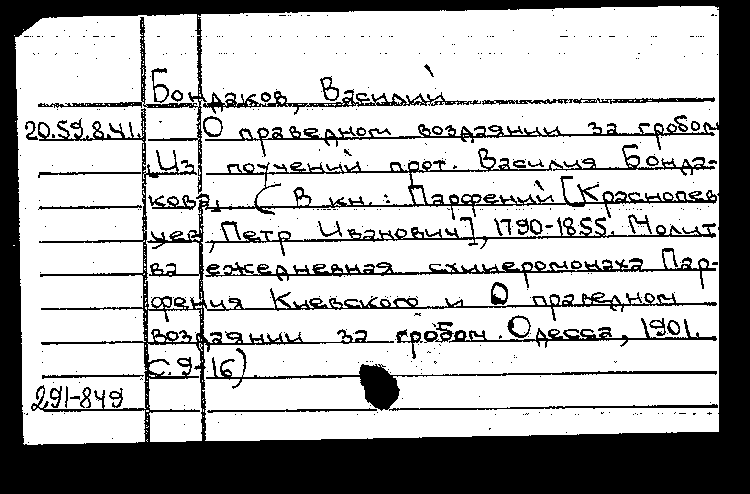 Бондаков, Василий
20.59.8.41. О праведном воздаянии за гробом
[Из поучений прот. Василия Бонда-
кова]. (В кн.: Парфений [Краснопев-
цев, Петр Иванович], 1790-1855. Молит-
ва ежедневная схииеромонаха Пар-
фения Киевского и О праведном
воздаянии за гробом. Одесса, 1901.
С. 9-16).
291-849